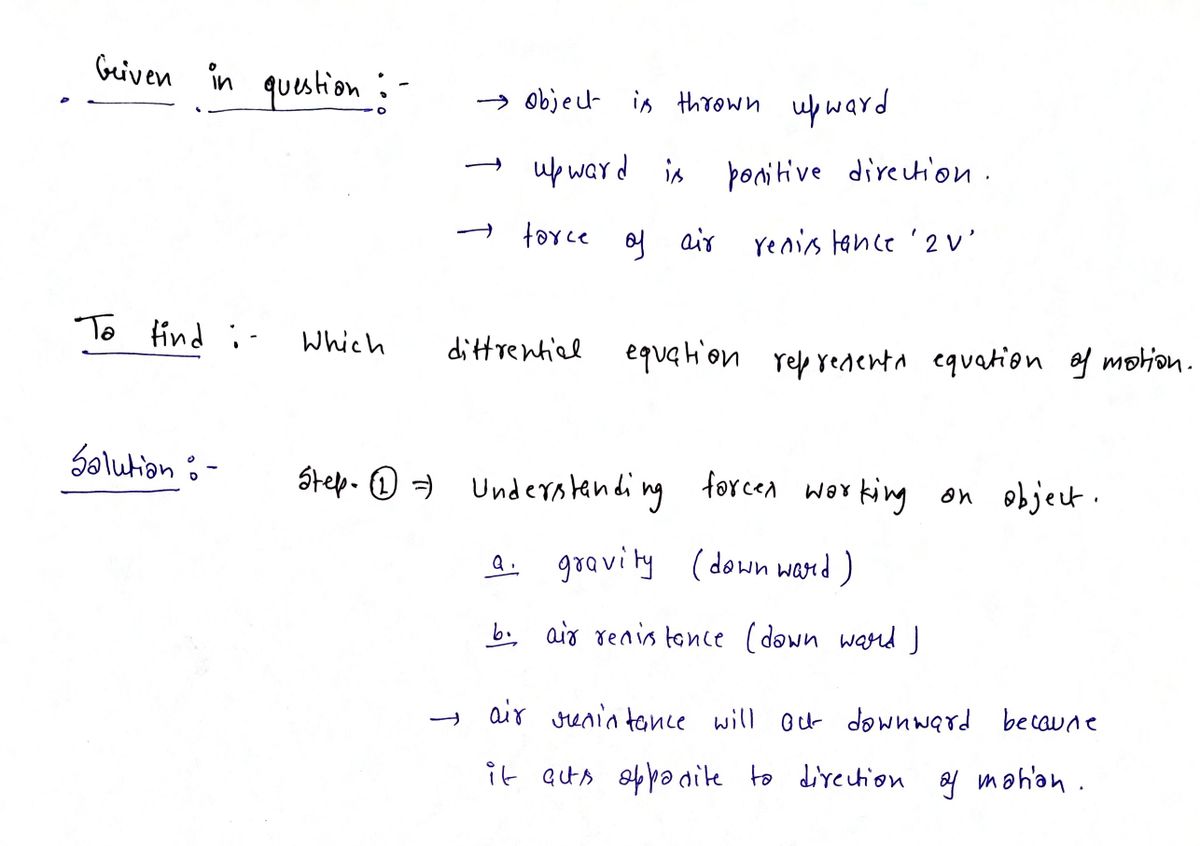 Given in question :-
→ object is thrown upward
→ upward is positive direction.
→ force of air resistance '2V'
To find :- Which diffrential equation represents equation of motion.
Solution :- Step-① ⇒ Understanding forces working on object.
a. gravity (downward)
b. air resistance (down ward)
→ air resistance will act downward because
it acts opposite to direction of motion.